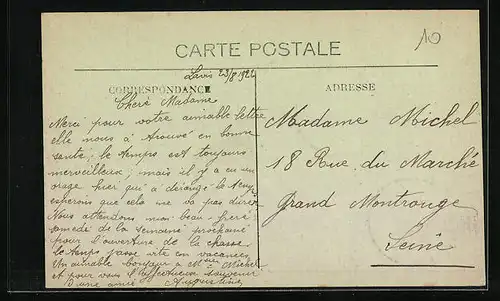 10
CARTE POSTALE
23/8 1922
CORRESPONDANCE
ADRESSE
Chère Madame
Merci pour votre aimable lettre
elle nous à trouvé en bonne
santé, le temps est toujours
merveilleux, mais il y a eu un
orage hier qui à dérangé le temps
esperons que cela ne va pas durer
Nous attendons mon beau-frère
samedi de la semaine prochaine
pour l'ouverture de la chasse
le temps passe vite en vacances
Un aimable bonjour à Michel
et pour vous l'affectueux souvenir
d'une amie Augustine
Madame Michel
18 Rue du Marché
Grand Montrouge
Seine